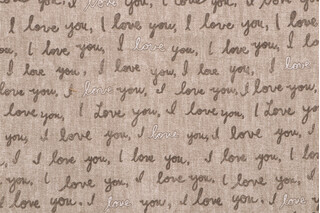 I love you, I love you, I love you,
I love you, I love you, I love you, I love you
I love you, I love you, I love you, I love you
I love you, I love you, I love
love you, I love you, I love you, I love you,
I love you, I Love you, I love you, I Love you
you, I love you, I love you, I love you,
I love you, I love you, I love you,
you, I love you, I love you, I love you,
I love you, I love you. I love